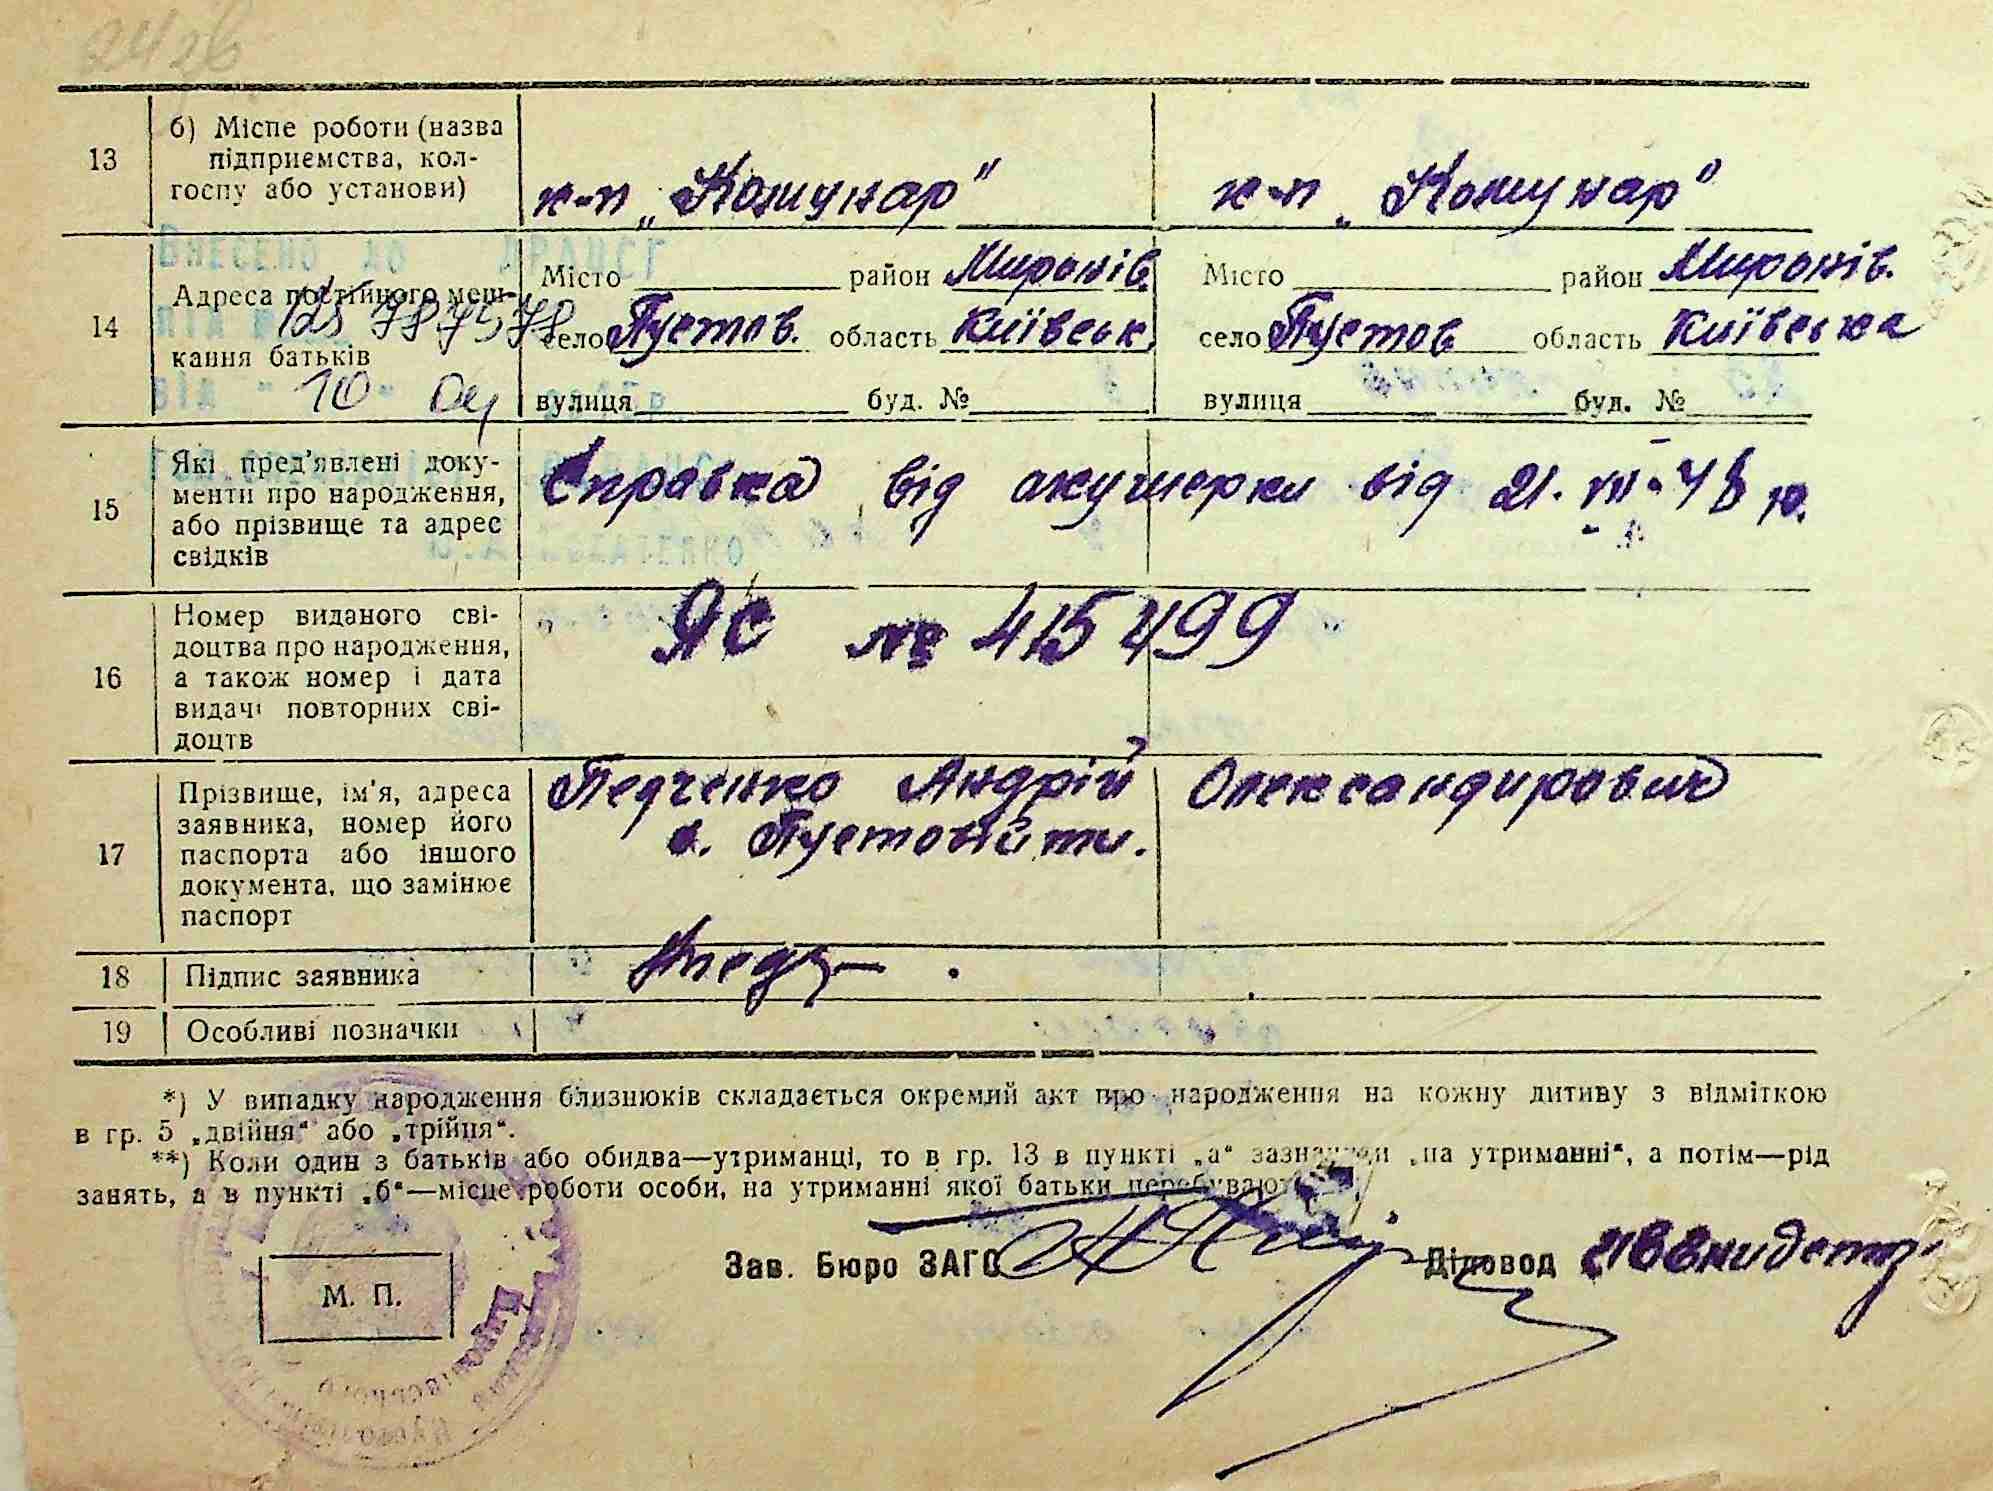 13
б) Місце роботи (назва
підприємства, кол-
госпу або установи)
к-п „Комунар"
к-п „Комунар"
ВНЕСЕНО ДО ДРАЦСГ
14
Адреса постійного меш-
кання батьків
Місто район Миронів.
село Пустов. область Київськ.
вулиця буд. №
Місто район Миронів.
село Пустов область Київська
вулиця буд. №
ВІД " 10 " 04
15
Які пред'явлені доку-
менти про народження,
або прізвище та адрес
свідків
Справка від акушерки від 21. VII-48 р.
16
Номер виданого сві-
доцтва про народження,
а також номер і дата
видачі повторних сві-
доцтв
ЯС № 415499
17
Прізвище, ім'я, адреса
заявника, номер його
паспорта або іншого
документа, що замінює
паспорт
Педченко Андрій Олександрович
с. Пустовійти.
18
Підпис заявника
19
Особливі позначки
*) У випадку народження близнюків складається окремий акт про народження на кожну дитину з відміткою
в гр. 5 „двійня“ або „трійця“.
**) Коли один з батьків або обидва—утриманці, то в гр. 13 в пункті „а“ зазначати „на утриманні“, а потім—рід
занять, а в пункті „б“—місце роботи особи, на утриманні якої батьки перебувають.
Зав. Бюро ЗАГС
Діловод
М. П.